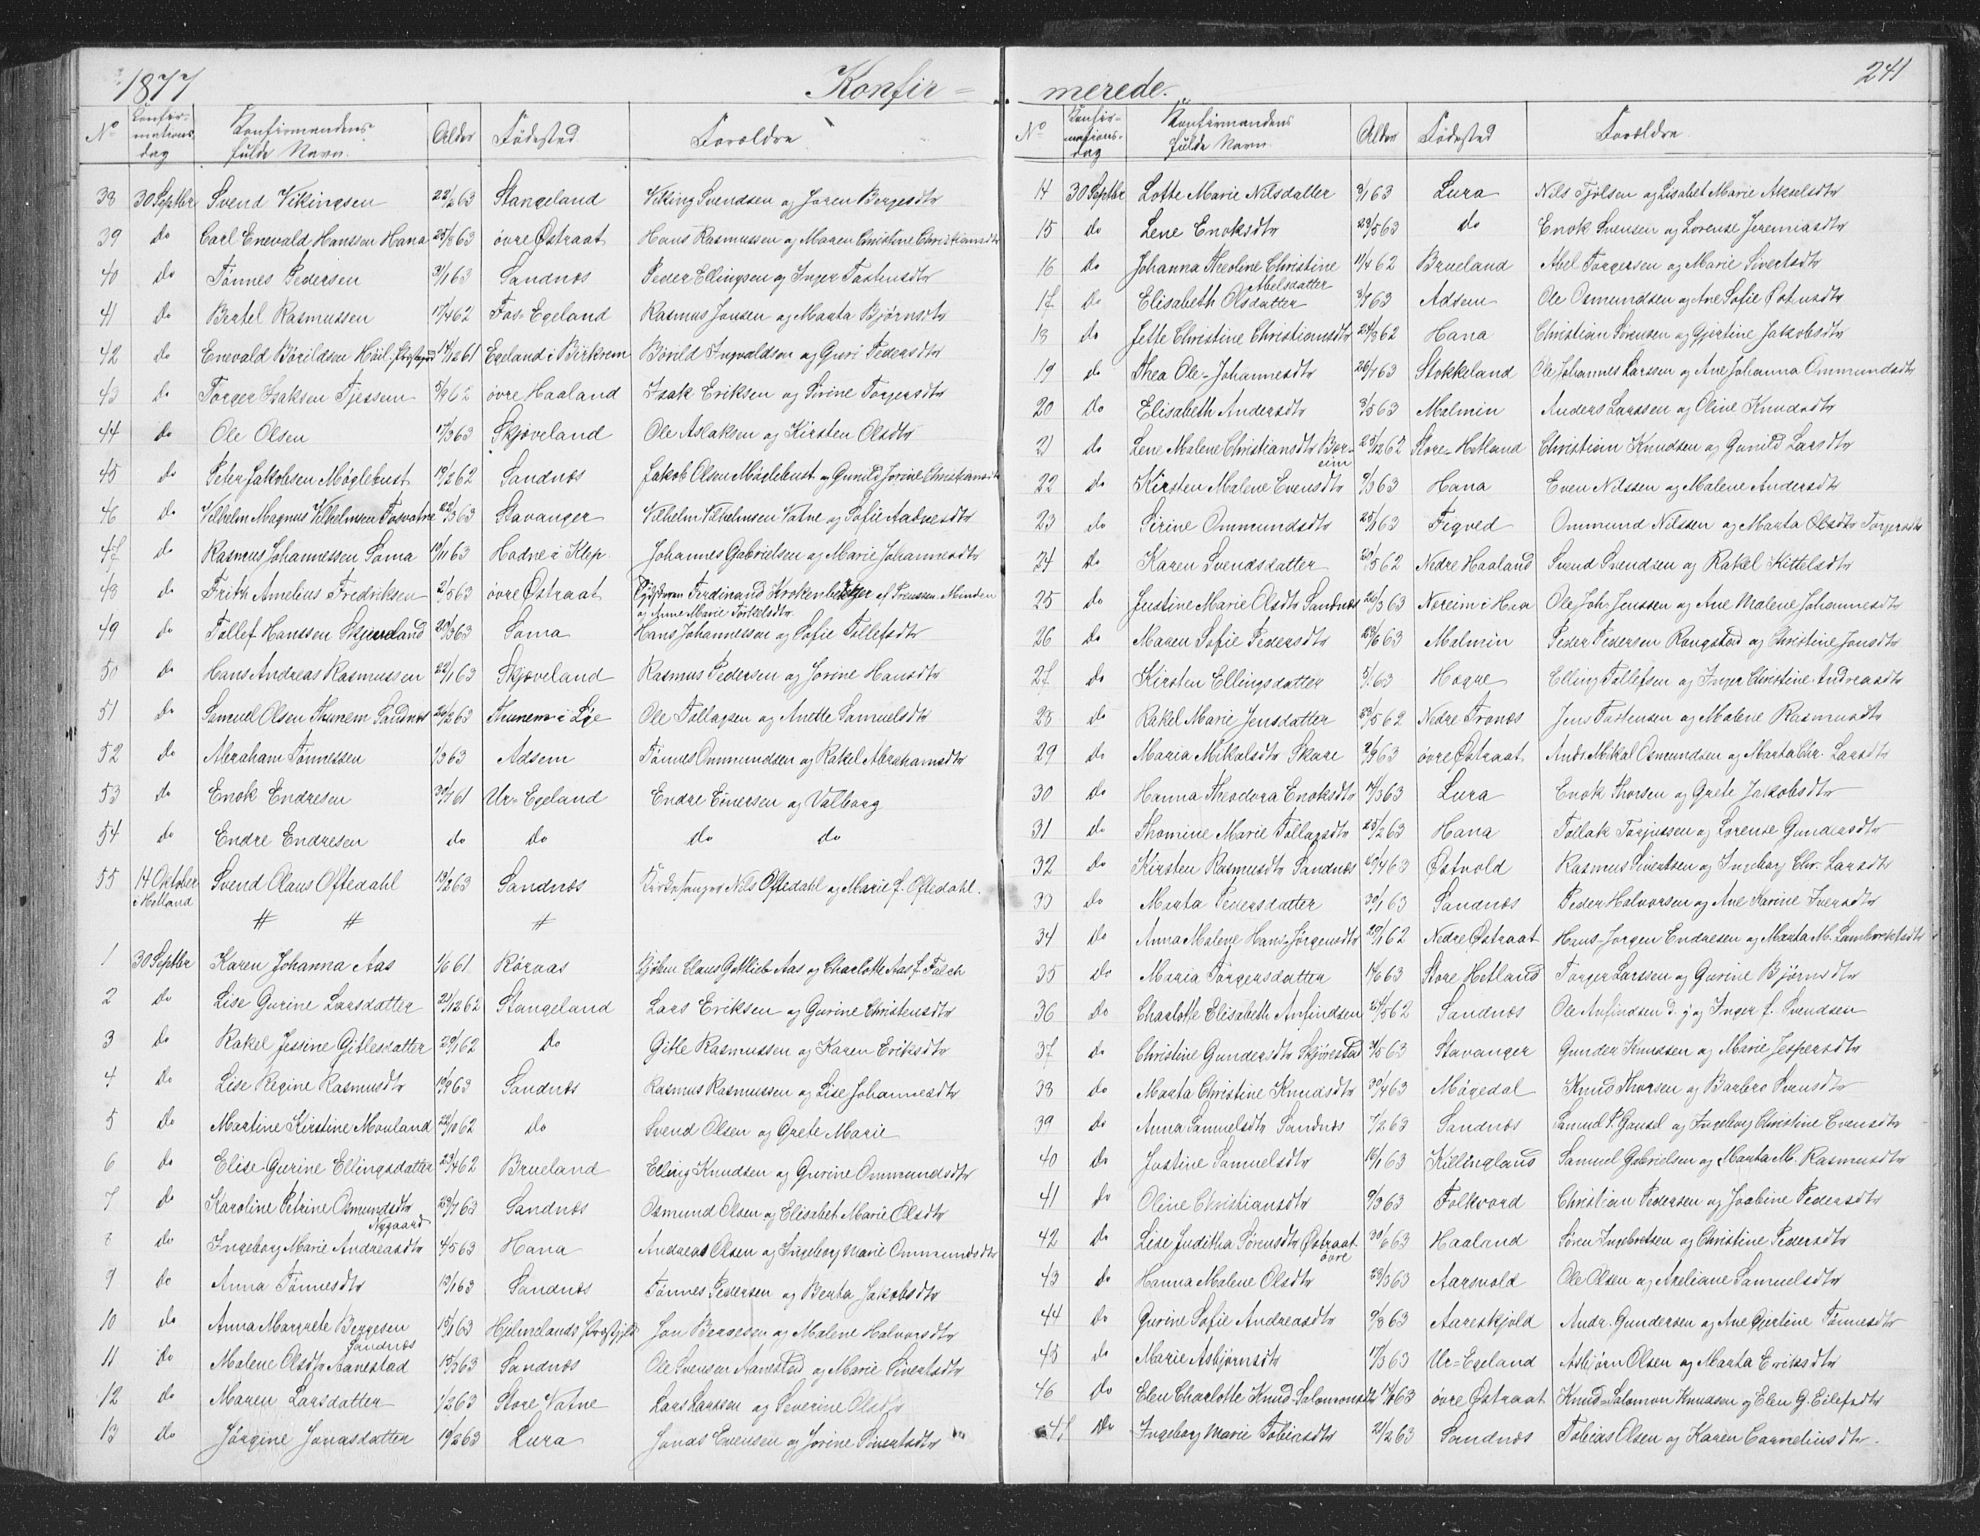 1877 Konfir=
No Konfir-mations dag Konfirmandens fulde Navn. Alder Fødested Forældre
38 30 Septbr Svend Vikingsen 22/2 63 Stangeland Viking Svendsen og Joren Bergesdtr
39 do Carl Enevald Hanssen Hana 25/3 63 øvre Østraat Hans Rasmussen og Maren Christine Christiansdtr
40 do Tønnes Pedersen 31/1 63 Sandnæs Peder Ellingsen og Inger Tostensdtr
41 do Bertel Rasmussen 17/4 62 Fos-Egeland Rasmus Jonsen og Marta Bjørnsdtr
42 do Enevald Børildsen 14/12 61 Egeland i Birkrem Børild Ingvaldsen og Guri Pedersdtr
43 do Torger Isaksen Tjessem 3/9 62 øvre Haaland Isak Eriksen og Sirine Torgersdtr
44 do Ole Olsen 17/3 63 Skjæveland Ole Aslaksen og Kirsten Olsdtr
45 do Peter Jakobsen Møglebust 19/2 62 Sandnæs Jakob Olsen Møglebust og Gunild Jorine Christiansdtr
46 do Vilhelm Magnus Vilhelmsen Fosvatne 22/3 63 Stavanger Vilhelm Vilhelmsen Vatne og Sofie Aadnesdtr
47 do Rasmus Johannessen Soma 19/11 63 Hodne i Klep. Johannes Gabrielsen og Marie Johannesdtr
48 do Frith Amelius Fredriksen 2/5 63 øvre Østraat Ferdinand Krokenberger af Preussen-Minden
og Anne Marie Torkelsdtr.
49 do Tollef Hanssen Skjæveland 20/3 63 Soma Hans Johannessen og Sofie Tollefsdtr
50 do Hans Andreas Rasmussen 22/1 63 Skjæveland Rasmus Pedersen og Jorine Hansdtr
51 do Samuel Olsen Thunem Sandnæs 24/3 63 Thunem i Lye Ole Tollagsen og Anette Samuelsdtr
52 do Abraham Tønnessen 1/3 63 Adsem Tønnes Ommundsen og Rakel Abrahamsdtr
53 do Enok Endresen 30/7 61 Ur-Egeland Endre Einersen og Valborg
54 do Endre Endresen do do do do
55 14 Oktober i Hølland Svend Olaus Oftedahl 19/2 63 Sandnæs Kirkesanger Nils Oftedahl og Marie f. Oftedahl.
# # #
1 30 Septbr Karen Johanna Aas 1/6 61 Røraas Claus Gottlieb Aas og Charlotte Aas f. Falch
2 do Lise Gurine Larsdatter 21/12 62 Stangeland Lars Eriksen og Gurine Christensdtr
3 do Rakel Jessine Gitlesdatter 29/1 62 do Gitle Rasmussen og Karen Eriksdtr
4 do Lise Regine Rasmusdtr 19/2 63 Sandnæs Rasmus Rasmussen og Lise Johannesdtr
5 do Martine Kirstine Mauland 22/10 62 do Svend Olsen og Grete Marie
6 do Elise Gurine Ellingsdatter 23/4 62 Brueland Elling Knudsen og Gurine Ommundsdtr
7 do Karoline Petrine Osmundsdtr Nygaard 29/7 63 Sandnæs Osmund Olsen og Elisabet Marie Olsdtr
8 do Ingeborg Marie Andreasdtr 4/5 63 Hana Andreas Olsen og Ingeborg Marie Ommundsdtr
9 do Anna Tønnesdtr 13/1 63 Sandnæs Tønnes Pedersen og Berta Jakobsdtr
10 do Anna Margrete Bergesen Sandnæs 15/1 63 Hjelmelands Præstgjeld Jon Bergesen og Malene Halvorsdtr
11 do Malene Olsdtr Aanestad 15/3 63 Sandnæs Ole Svensen Aanestad og Marie Sivertsdtr
12 do Maren Larsdatter 1/2 63 Store Vatne Lars Larssen og Severine Olsdtr
13 do Jørgine Jonasdatter 19/2 63 Lura Jonas Evensen og Jorine Sivertsdtr
merede. 241
No Konfir-mations-dag Konfirmandens fulde Navn Alder Fødested Forældre.
14 30 Septbr Lotte Marie Nilsdatter 3/1 63 Lura Nils Tjølsen og Lisabet Marie Akselsdtr
15 do Lene Enoksdtr 29/5 63 do Enok Svensen og Lorense Jeremiasdtr
16 do Johanna Theoline Christine Abelsdatter 11/4 62 Brueland Abel Torgersen og Marie Sivertsdtr
17 do Elisabeth Olsdatter 3/1 63 Adsem Ole Osmundsen og Ane Sofie Østensdtr
18 do Jette Christine Christiansdtr 24/9 62 Hana Christian Sørensen og Gjertine Jakobsdtr
19 do Thea Ole-Johannesdtr 26/1 63 Stokkeland Ole Johannes Larssen og Ane Johanna Ommundsdtr
20 do Elisabeth Andersdtr 3/5 63 Malmin Anders Larssen og Oline Knudsdtr
21 do Lene Malene Christiansdtr Bor-eim 29/12 62 Store-Hetland Christian Knudsen og Gunild Larsdtr
22 do Kirsten Malene Evensdtr 9/3 63 Hana Even Nilssen og Malene Andersdtr
23 do Sirine Ommundsdtr 25/1 63 Figved Ommund Nilssen og Marta Olsdtr Torgersdtr
24 do Karen Svendsdatter 20/5 62 Nedre Haaland Svend Svendsen og Rakel Kittelsdtr
25 do Justine Marie Olsdtr Sandnæs 20/3 63 Nereim i Haa Ole Joh. Jenssen og Ane Malene Johannesdtr
26 do Maren Sofie Pedersdtr 29/6 63 Malmin Peder Pedersen Rangstad og Christine Jonsdtr
27 do Kirsten Ellingsdatter 5/1 63 Hogre Elling Tollefsen og Inger Christine Andreasdtr
28 do Rakel Marie Jensdatter 29/5 62 Nedre Tronæs Jens Tostensen og Malene Rasmusdtr
29 do Maria Mikalsdtr Skare 2/9 63 øvre Østraat Andr. Mikal Osmundsen og Marta Chr. Larsdtr
30 do Hanna Theodora Enoksdtr 14/3 63 Lura Enok Thorsen og Grete Jakobsdtr
31 do Thomine Marie Tollagsdtr 23/2 63 Hana Tollak Torjussen og Lorense Gundersdtr
32 do Kirsten Rasmusdtr Sandnæs 20/4 63 Østvold Rasmus Sivertsen og Ingeborg Chr. Larsdtr
33 do Marta Pedersdatter 30/1 63 Sandnæs Peder Halvorsen og Ane Karine Iversdtr
34 do Anna Malene Hans-Jørgensdtr 29/1 62 Nedre Østraat Hans-Jørgen Endresen og Marta M. Lambrektsdtr
35 do Maria Torgersdatter 14/6 63 Store Hetland Torger Larssen og Gurine Bjørnsdtr
36 do Charlotte Elisabeth Anfindsen 25/5 62 Sandnæs Ole Anfindsen d. y. og Inger f. Svendsen
37 do Christine Gundersdtr Skjørestad 31/5 63 Stavanger Gunder Knudsen og Marie Jespersdtr
38 do Marta Christine Knudsdtr 30/4 63 Møgedal Knud Thorsen og Barbro Svensdtr
39 do Anna Samuelsdtr Sandnæs 7/2 63 Sandnæs Samuel P. Gausel og Ingeborg Christine Evensdtr
40 do Justine Samuelsdtr 12/1 63 Killingland Samuel Gabrielsen og Marta M. Rasmusdtr
41 do Oline Christiansdtr 9/3 63 Folkvord Christian Pedersen og Jaabine Pedersdtr
42 do Lise Juditha Sørensdtr Østraat øvre 30/6 63 Haaland Søren Ingebretsen og Christine Pedersdtr
43 do Hanna Malene Olsdtr 29/3 63 Aarsvold Ole Olsen og Areliane Samuelsdtr
44 do Gurine Sofie Andreasdtr 9/8 63 Aareskjold Andr. Gundersen og Ane Gjertine Tønnesdtr
45 do Marie Asbjørnsdtr 17/3 63 Ur-Egeland Asbjørn Olsen og Marta Eriksdtr
46 do Elen Charlotte Knud-Salomonsdtr 14/2 63 øvre Østraat Knud-Salomon Knudsen og Elen G. Eilefsdtr
47 do Ingeborg Marie Tobiasdtr 21/2 63 Sandnæs Tobias Olsen og Karen Corneliusdtr.